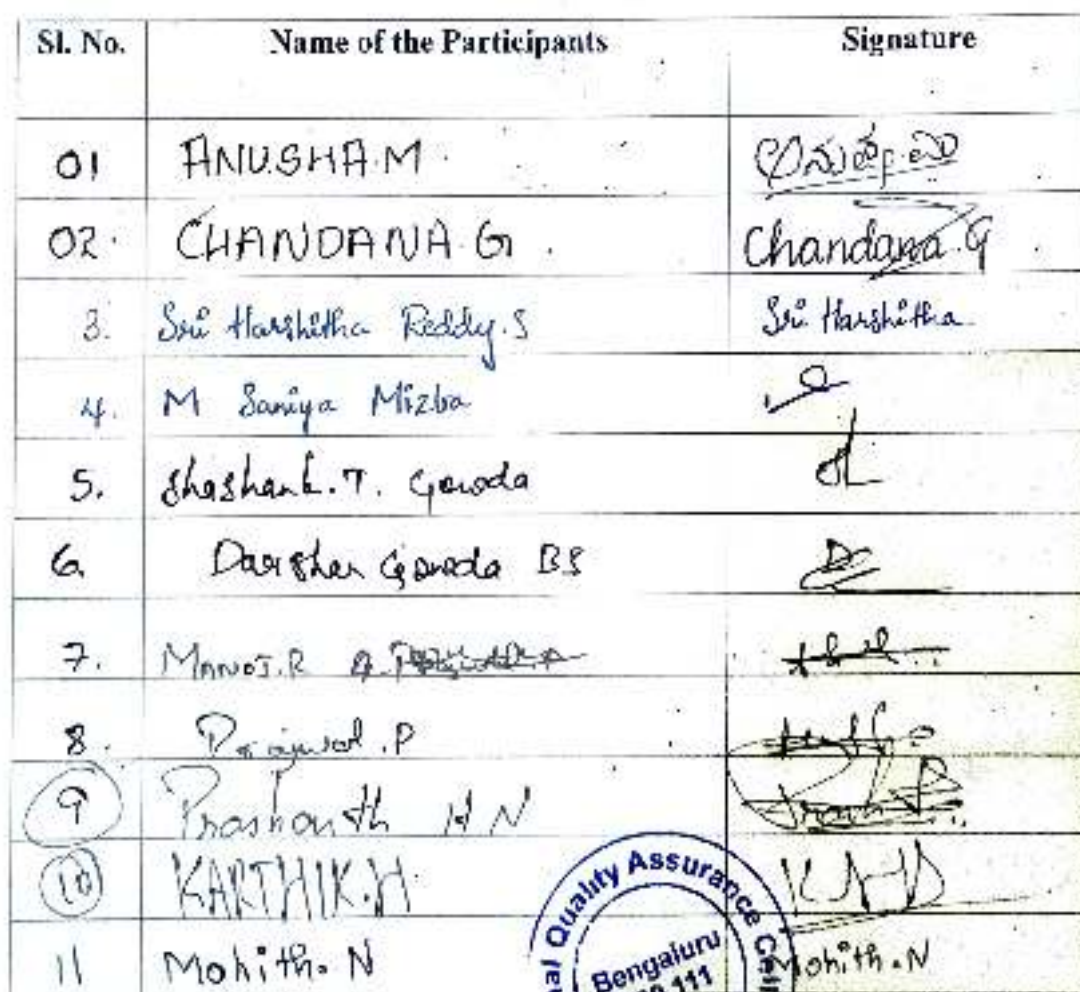 Sl. No. Name of the Participants Signature
01 ANUSHA.M
02. CHANDANA.G. Chandana.G
3. Sri Harshitha Reddy.S Sri Harshitha
4. M Saniya Mizba
5. Shashank.T. Gowda
6. Darshan Gowda BS
7. MANOJ.R
8. Prajwal.P
9 Prashanth H N
10 KARTHIK.H
11 Mohith.N Mohith.N
Quality Assurance Cell
Bengaluru
111